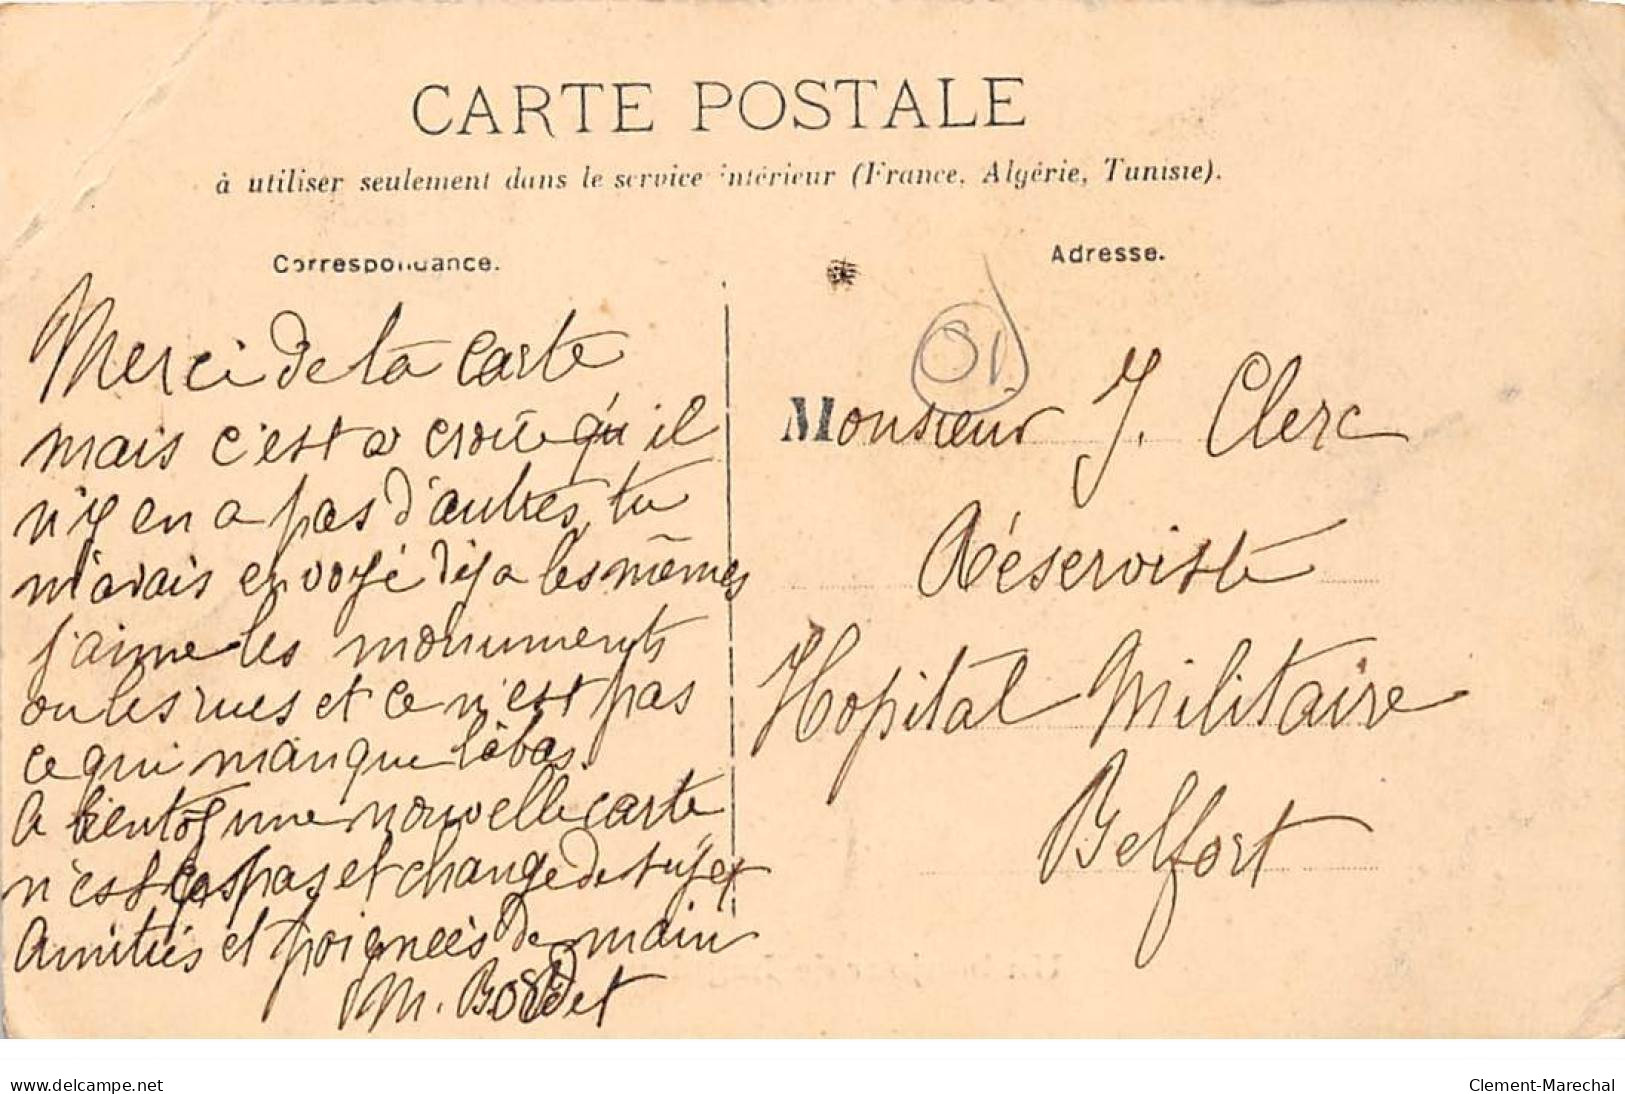 CARTE POSTALE
à utiliser seulement dans le service intérieur (France, Algérie, Tunisie).
Correspondance.
Merci de la carte
mais c'est a croire qu'il
n'y en a pas d'autres, tu
m'avais envoyé déja les mêmes
j'aime les monuments
ou les rues et ce n'est pas
ce qui manque làbas.
A bientôt une nouvelle carte
n'est ce pas et change de sujet
Amitiés et poignées de main
M.
Adresse.
01
Monsieur J. Clerc
Réserviste
Hopital Militaire
Belfort
www.delcampe.net
Clement-Marechal